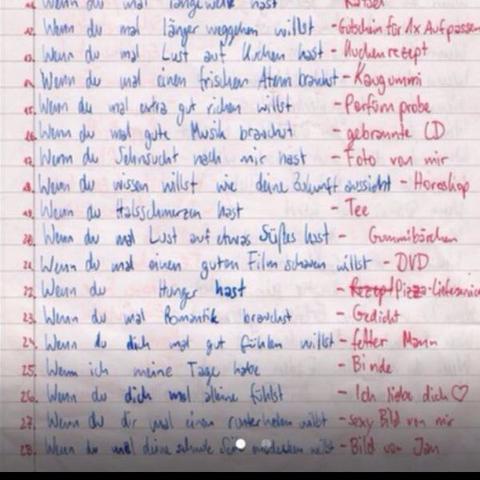 Wenn du mal langeweile hast - Rätsel
12. Wenn du mal länger weggehen willst - Gutschein für 1x Aufpassen
13. Wenn du mal Lust auf Kuchen hast - Kuchenrezept
14. Wenn du mal einen frischen Atem brauchst - Kaugummi
15. Wenn du mal extra gut riechen willst - Parfüm probe
16. Wenn du mal gute Musik brauchst - gebrannte CD
17. Wenn du Sehnsucht nach mir hast - Foto von mir
18. Wenn du wissen willst wie deine Zukunft aussieht - Horoskop
19. Wenn du Halsschmerzen hast - Tee
20. Wenn du mal Lust auf etwas Süßes hast - Gummibärchen
21. Wenn du mal einen guten Film schauen willst - DVD
22. Wenn du Hunger hast - Pizza-Lieferservice
23. Wenn du mal Romantik brauchst - Gedicht
24. Wenn du dich mal gut fühlen willst - fetter Mann
25. Wenn ich meine Tage habe - Binde
26. Wenn du dich mal alleine fühlst - Ich liebe dich ♡
27. Wenn du dir mal einen runterholen willst - sexy Bild von mir
28. Wenn du mal deine schwule Seite entdecken willst - Bild von Jan